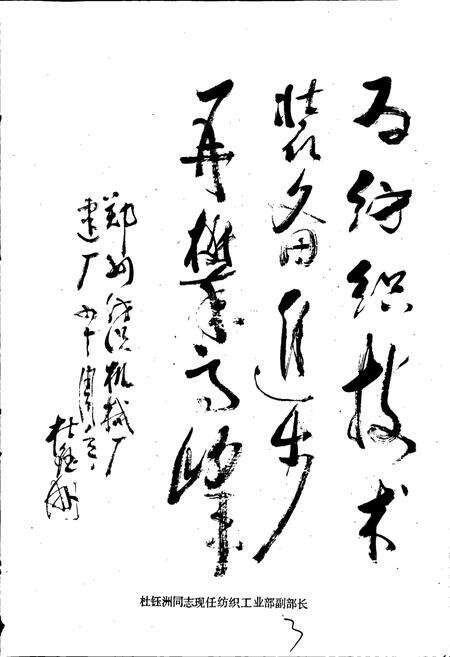 为纺织技术
装备进步
再攀高峰
郑州纺织机械厂
建厂四十周年
杜钰洲
杜钰洲同志现任纺织工业部副部长
3